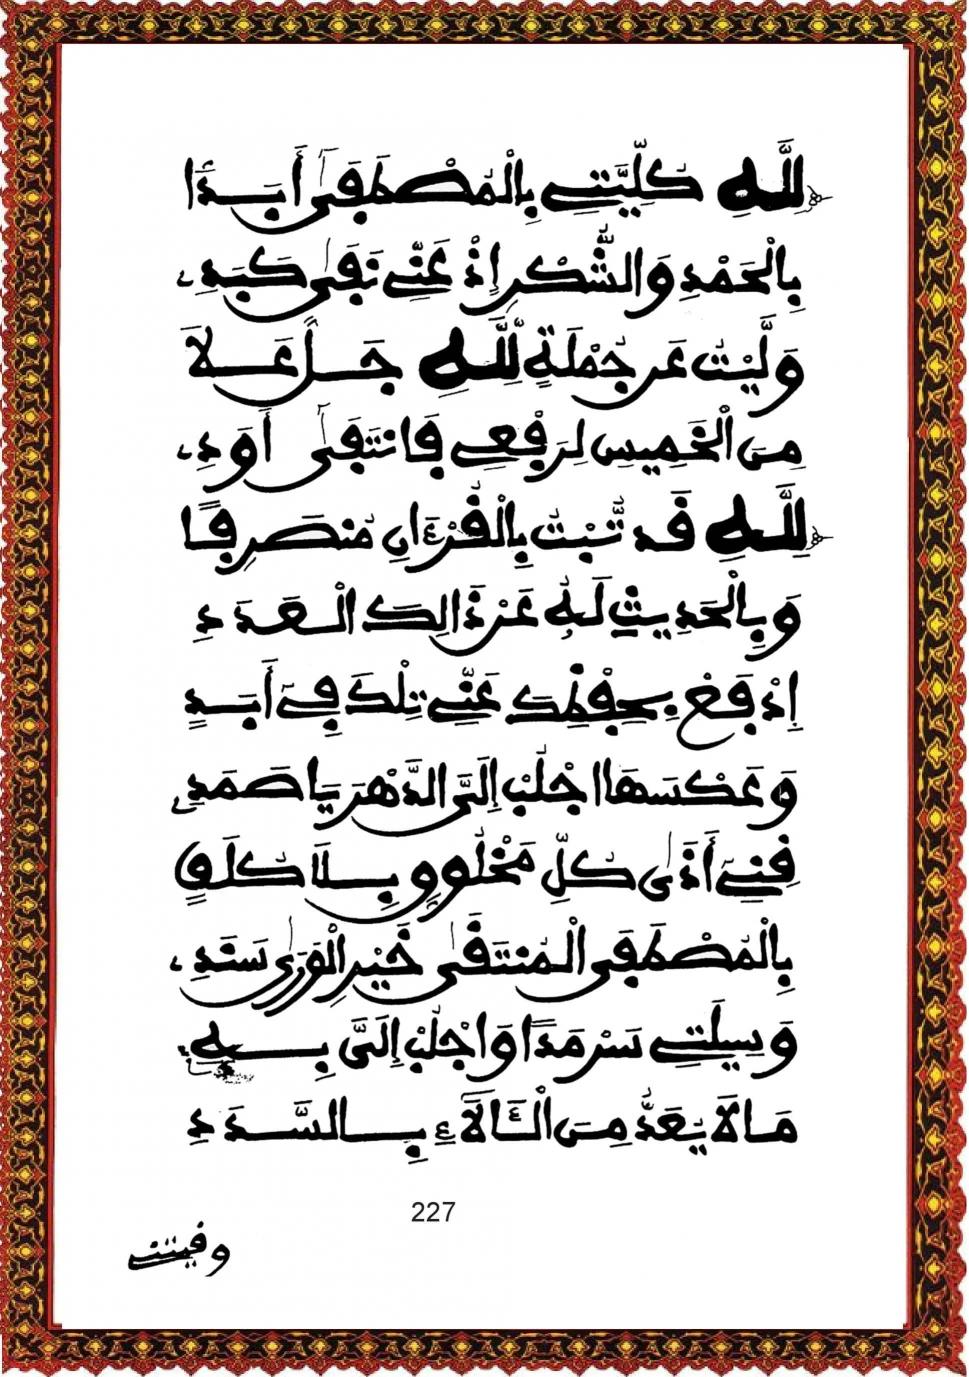 لِلَّهِ كُلِّيَّتِي بِالْمُصْطَفَىٰ أَبَدًا
بِالْحَمْدِ وَالشُّكْرِ إِذْ عَنِّي نَفَىٰ كَبَدِ
وَلَّيْتُ عَن جُمْلَةٍ لِلَّهِ جَلَّ عَلَا
مِنَ الْخَمِيسِ لِرَفْعِي فَانتَفَىٰ أَوَدِ
لِلَّهِ قَد تُّبْتُ بِالْقُرْءَانِ مُنصَرِفًا
وَبِالْحَدِيثِ لَهُ عَن ذَالِكَ الْعَدَدِ
إِدْفَعْ بِحِفْظِكَ عَنِّي تِلْكَ فِي أَبَدٍ
وَعَكْسَهَا اجْلُبْ إِلَيَّ الدَّهْرَ يَا صَمَدِ
قِنِي أَذَىٰ كُلِّ مَخْلُوقٍ بِلَا كُلَفٍ
بِالْمُصْطَفَى الْمُنتَقَىٰ خَيْرِ الْوَرَىٰ سَنَدِ
وَسِيلَتِي سَرْمَدًا وَاجْلُبْ إِلَيَّ بِهِ
مَا لَا يُعَدُّ مِنَ الْآلَاءِ بِالسَّدَدِ
227
وقيتني